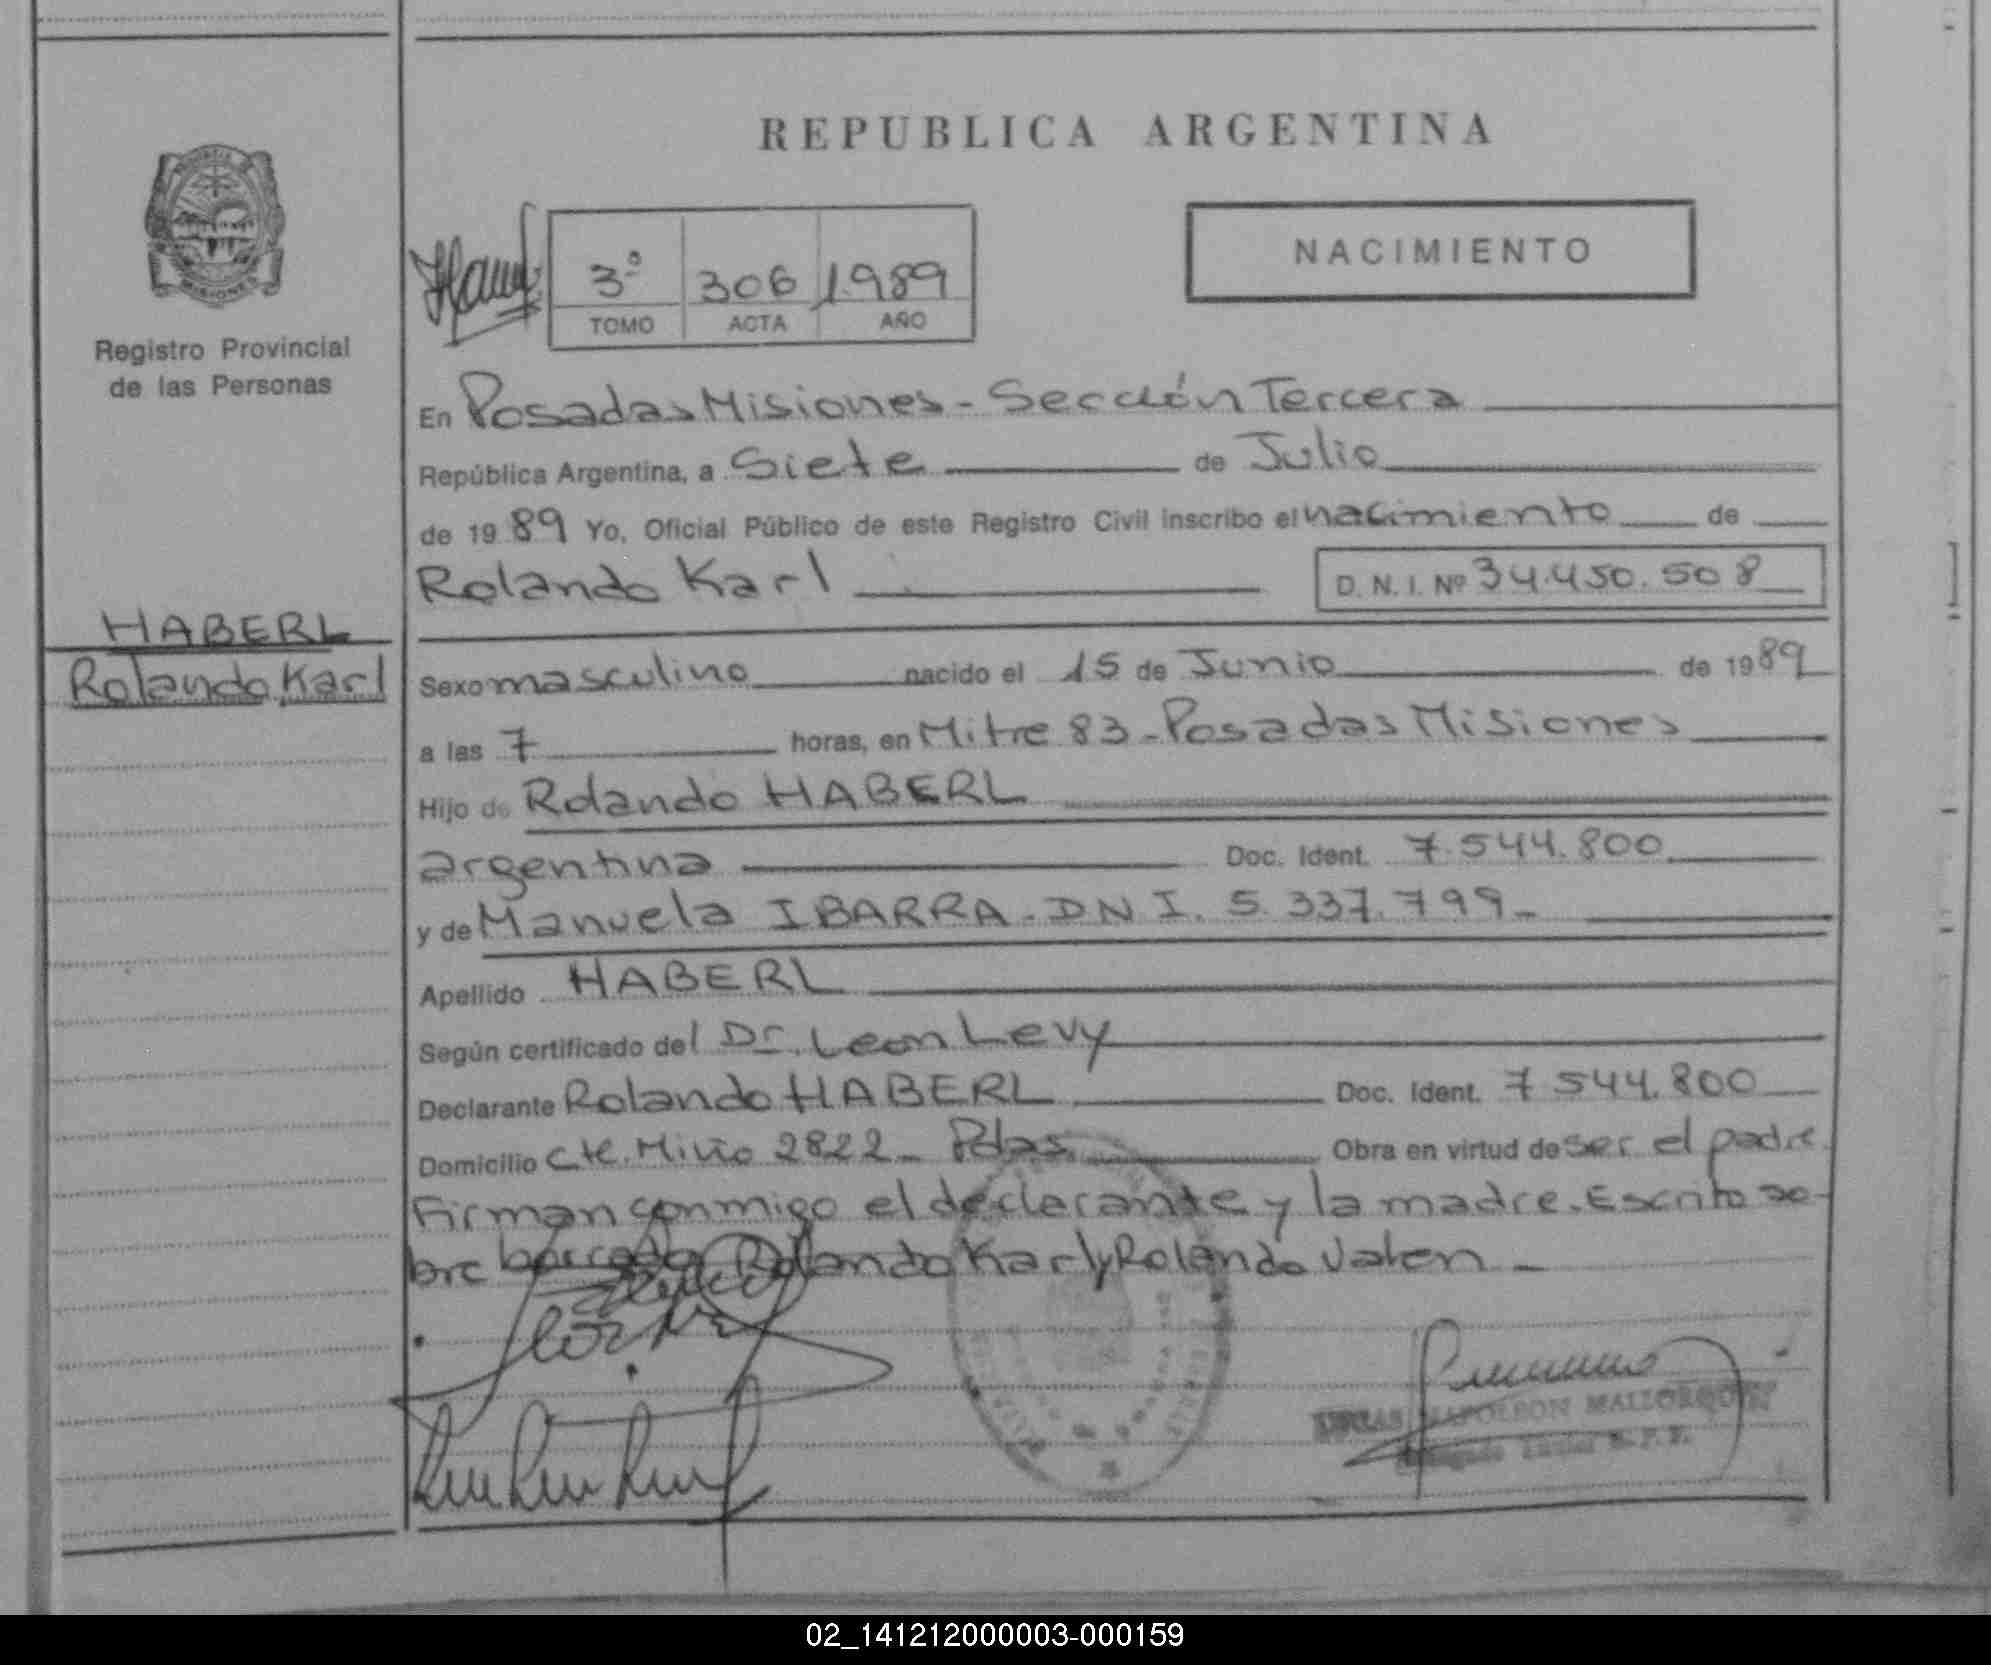 REPUBLICA ARGENTINA
NACIMIENTO
3º 306 1.989
TOMO ACTA AÑO
Registro Provincial
de las Personas
HABERL
Rolando Karl
En Posadas Misiones - Sección Tercera
República Argentina, a Siete de Julio
de 1989 Yo, Oficial Público de este Registro Civil inscribo el nacimiento de
Rolando Karl D. N. I. Nº 34.450.508
Sexo masculino nacido el 15 de Junio de 1989
a las 7 horas, en Mitre 83 - Posadas Misiones
Hijo de Rolando HABERL
argentina Doc. Ident. 7.544.800
y de Manuela IBARRA - DNI. 5.337.799 -
Apellido HABERL
Según certificado del Dr. Leon Levy
Declarante Rolando HABERL Doc. Ident. 7 544.800
Domicilio Cte. Miño 2822 - Pdas. Obra en virtud de ser el padre.
Firman conmigo el declarante y la madre. Escrito so-
bre borrado Rolando Karl y Rolando Valen -
NAPOLEON MALLORQUIN
02_141212000003-000159